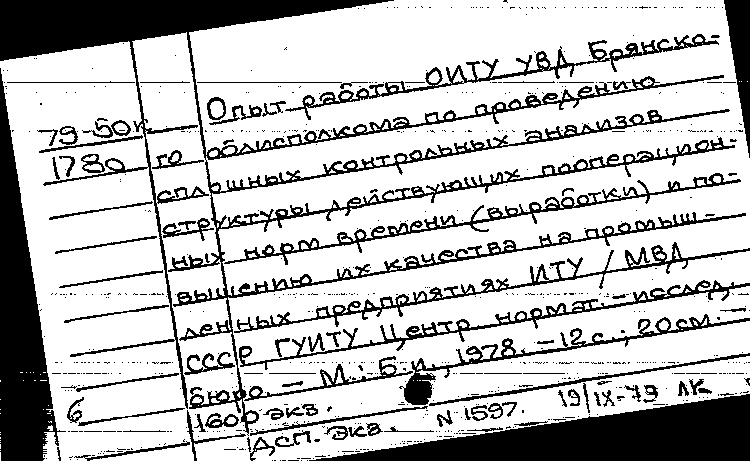 Опыт работы ОИТУ УВД Брянско-
79-50к.
1780 го облисполкома по проведению
сплошных контрольных анализов
структуры действующих пооперацион-
ных норм времени (выработки) и по-
вышению их качества на промыш-
ленных предприятиях ИТУ / МВД
СССР, ГУИТУ. Центр. нормат.-исслед.
бюро. - М.: Б.и., 1978. - 12 с.; 20 см. -
6 1600 экз.
Дсп. Экз. N 1597. 19/IX-79 ЛК